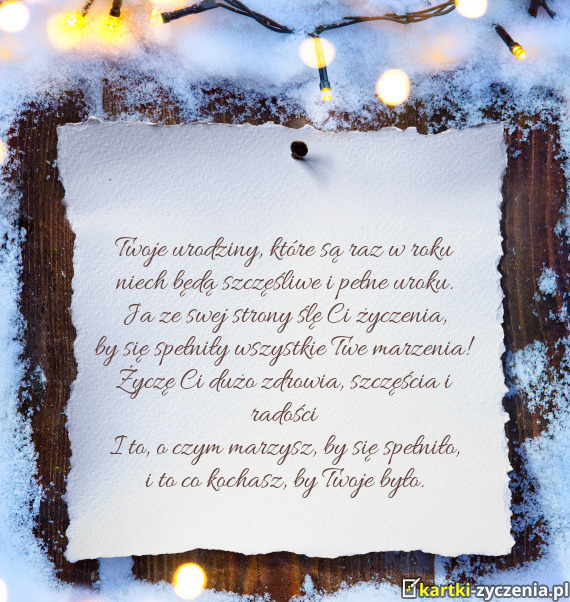 Twoje urodziny, które są raz w roku
niech będą szczęśliwe i pełne uroku.
Ja ze swej strony ślę Ci życzenia,
by się spełniły wszystkie Twe marzenia!
Życzę Ci dużo zdrowia, szczęścia i
radości
I to, o czym marzysz, by się spełniło,
i to co kochasz, by Twoje było.
kartki-zyczenia.pl